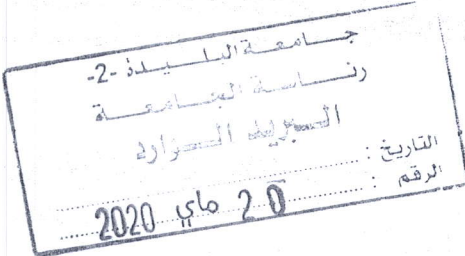 جامعة البليدة -2-
رئاسة الجامعة
البريد الوارد
التاريخ :
الرقم :
20 ماي 2020